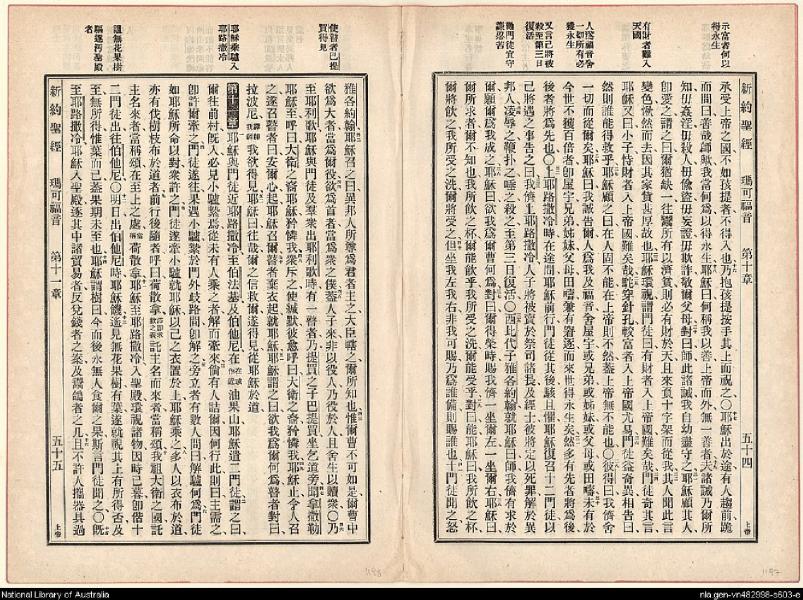 示富者何以得永生
有財者難入天國
人為福音舍一切所有必獲永生
又言己將被殺至第三日復活
新約聖經 瑪可福音 第十章 五十四 上帝
承受上帝之國不如孩提者不得入也乃抱孩提按手其上而祝之〇耶穌出於途有人趨前跪
而問曰善哉師歟我當何為以得永生耶穌曰何稱我以善上帝而外無一善者夫諸誡乃爾所
知毋姦淫毋殺人毋偷盜毋妄證毋欺詐敬爾父母對曰師此諸誡我自幼盡守之耶穌顧其人
即愛之謂之曰爾猶缺一往鬻所有以濟貧則必有財於天且來負十字架而從我其人聞此言
變色愀然而去因其家貲甚厚故也耶穌環視謂門徒曰有財者入上帝國難矣哉門徒奇其言
耶穌又曰小子恃財者入上帝國難矣哉駝穿針孔較富者入上帝國尤易門徒益奇異相告曰
然則誰能得救乎耶穌顧之曰在人固不能在上帝則不然蓋上帝無不能也〇彼得曰我儕舍
一切而從爾矣耶穌曰我誠告爾人為我及福音舍屋宇或兄弟或姊妹或父母或田疇未有於
今世不獲百倍者即屋宇兄弟姊妹父母田疇兼有窘逐而來世得永生矣然多有先者將為後
後者將為先也〇上耶路撒冷時在途間耶穌前行門徒從其後駭且懼耶穌復召十二門徒以
己將遇之事告之曰我儕上耶路撒冷人子將被賣於祭司諸長及士子彼將定以死罪解於異
邦人凌辱之鞭扑之唾之殺之至第三日復活〇西比代子雅各約翰就耶穌曰師我儕有求於
爾願爾為我成之耶穌曰欲我為爾曹何為對曰爾得榮時賜我儕一坐爾左一坐爾右耶穌曰
爾所求者爾不知也我所飲之杯爾能飲乎我所受之洗爾能受乎對曰能耶穌曰我所飲之杯
爾將飲之我所受之洗爾將受之但坐我左我右非我可賜乃為誰備則賜誰也十門徒聞之怒
使瞽者巴提買得見
耶穌乘驢入耶路撒冷
詛無花果樹
驅逐污聖殿者
雅各約翰耶穌召之曰異邦人所尊為君者主之大臣轄之爾所知也惟爾曹不可如是爾曹中
欲為大者當為爾役欲為首者當為眾之僕蓋人子來非以役人乃役於人且舍生以贖眾〇乃
至耶利歌耶穌與門徒及羣眾出耶利歌時有一瞽者乃提買之子巴提買坐乞道旁聞拿撒勒
耶穌至呼曰大衛之裔耶穌矜憐我眾斥之使緘默彼愈呼曰大衛之裔矜憐我耶穌止令人召
之遂召瞽者曰安爾心起耶穌召爾瞽者棄衣起就耶穌耶穌謂之曰欲我為爾何為瞽者對曰
拉波尼我欲得見耶穌曰往哉爾之信救爾遂得見從耶穌於道
第十一章 耶穌與門徒近耶路撒冷至伯法基及伯他尼在油果山耶穌遣二門徒謂之曰
爾往前村既入必見小驢縶焉從未有人乘之者解而牽來倘有人詰爾因何行此則曰主需之
即許爾牽之門徒遂往果遇小驢縶於門外歧路間即解之旁立者有數人問曰解驢何為門徒
如耶穌所命以對眾許之門徒遂牽小驢就耶穌以己之衣置於上耶穌乘之多人以衣布於道
亦有伐樹枝布於道者前行後隨者呼曰荷散拿主名而來者當稱頌我祖大衛之國託
主名來者當稱頌在至上之處荷散拿耶穌至耶路撒冷入聖殿環視諸物因時已暮即偕十
二門徒出往伯他尼〇明日出伯他尼時耶穌饑遙見無花果樹有葉遂就視其上有所得否及
至無所得惟葉而已蓋果期未至也耶穌謂樹曰今而後永無人食爾之果斯言門徒聞之〇既
至耶路撒冷耶穌入聖殿遂其中諸貿易者反兌錢者之案及鬻鴿者之几且不許人攜器具過
新約聖經 瑪可福音 第十一章 五十五 上帝
National Library of Australia
nla.gen-vn482998-s603-e